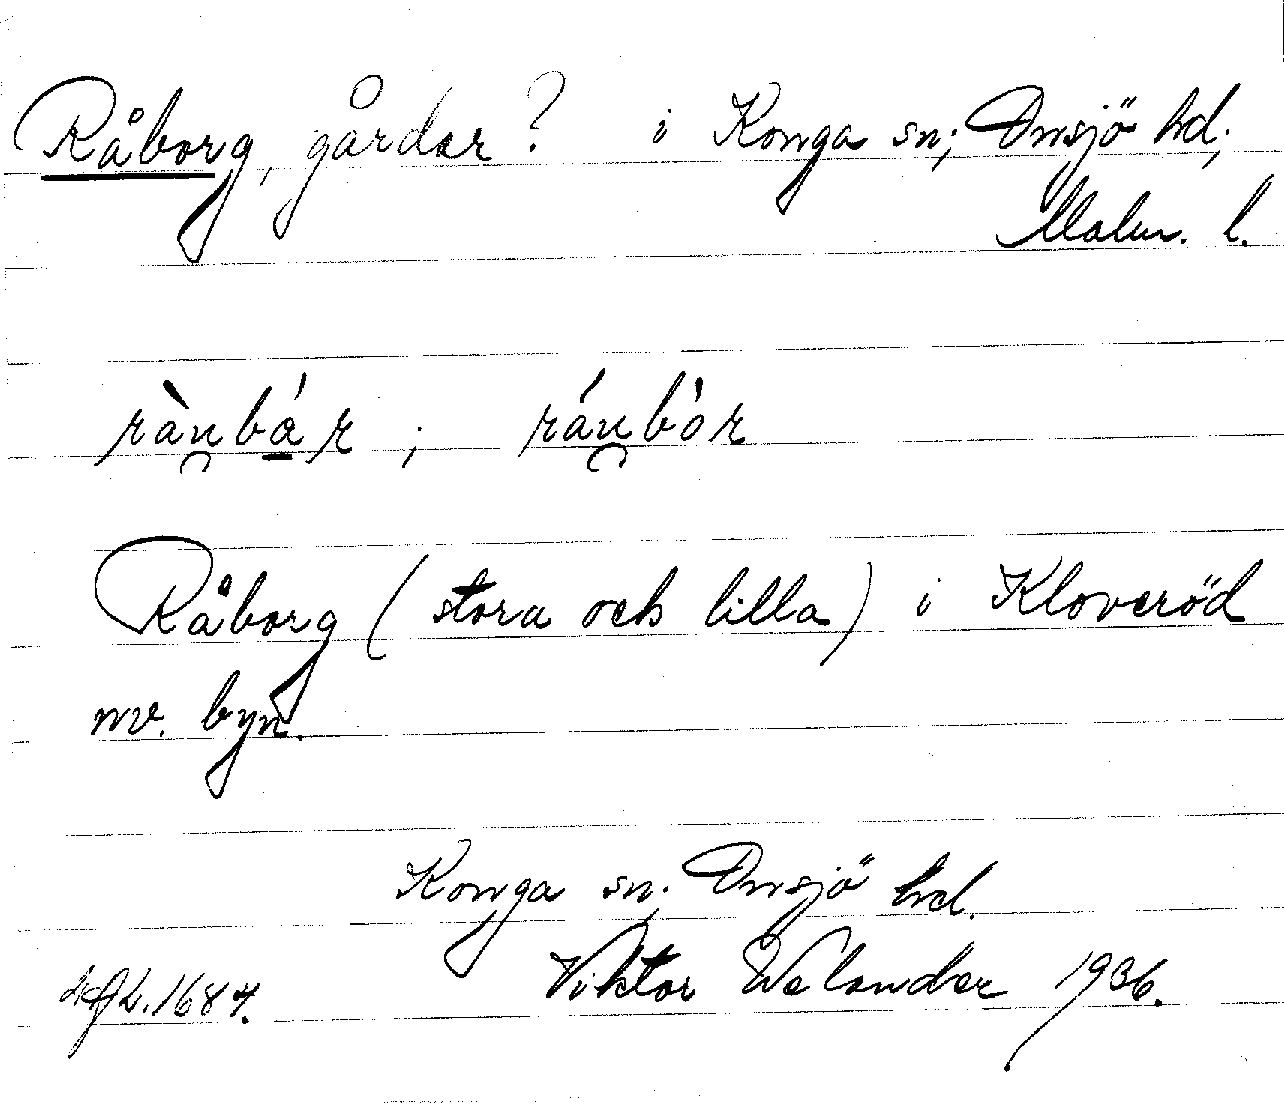 Råborg, gårdar? i Konga sn; Onsjö hd;
Malm. l.
rànbár ; ránbòr
Råborg (stora och lilla) i Kloveröd
nv. byn.
Konga sn. Onsjö hd.
Viktor Welander 1936.
1684.